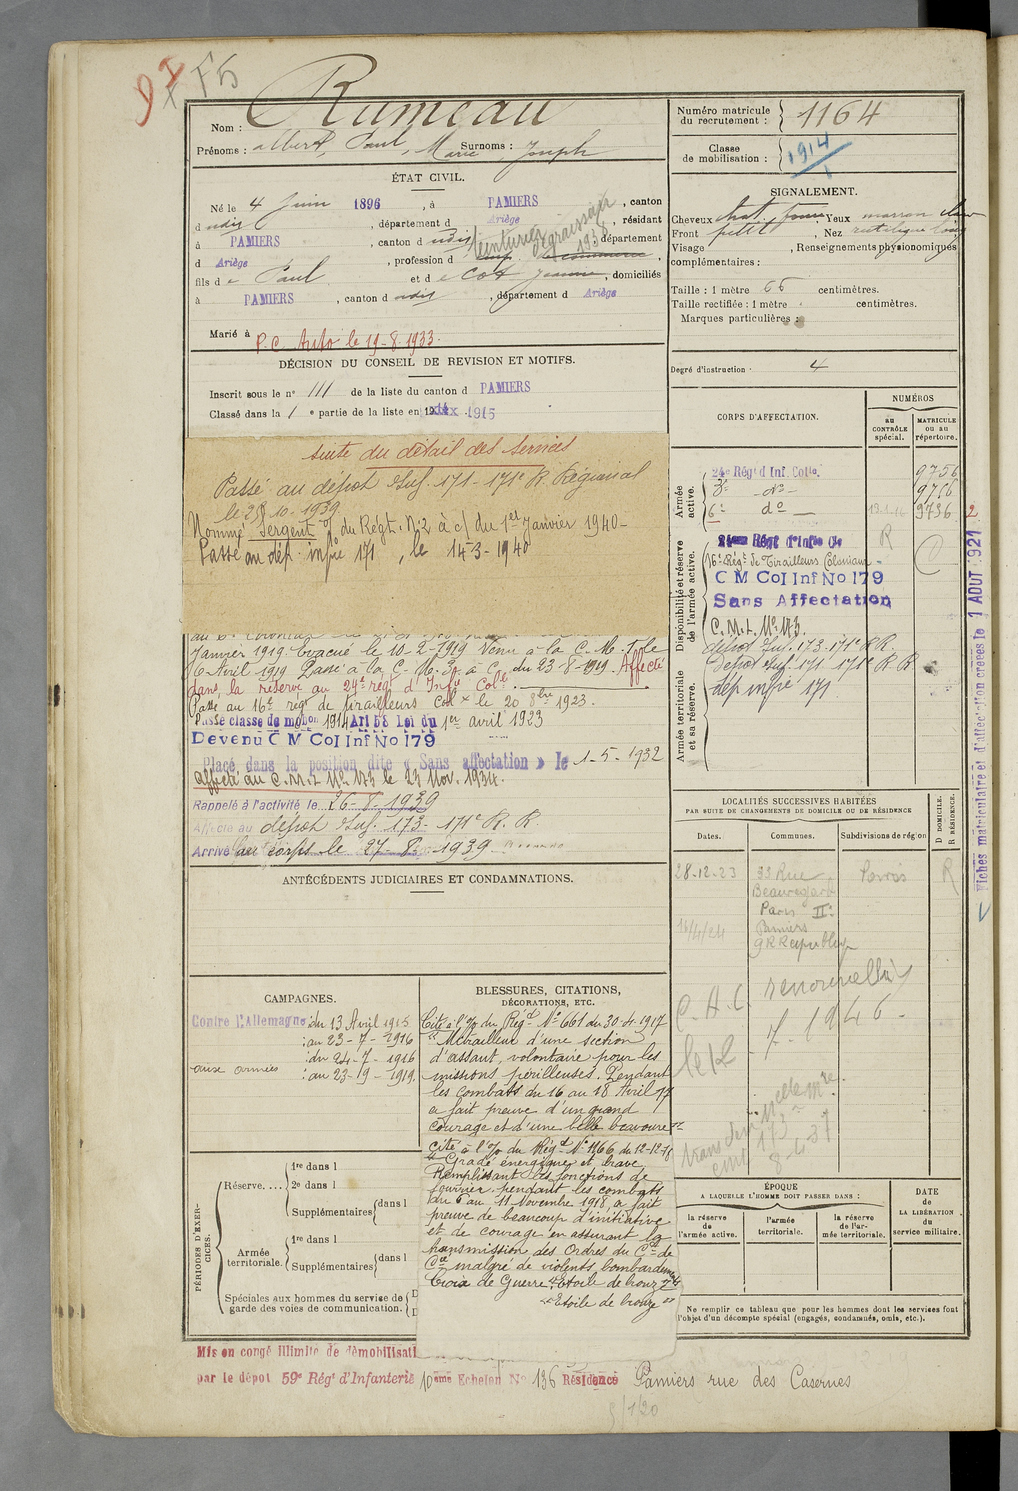 Rumeau
Nom :
Prénoms : Albert, Paul, Marie Joseph Surnoms :
ÉTAT CIVIL.
Né le 4 Juin 1896, à PAMIERS, canton
d udit, département d Ariège, résidant
à PAMIERS, canton d udit, département
d Ariège, profession d emp. de commerce,
teinturier dégraisseur 1938
fils d e Paul et d e Cot Jeanne, domiciliés
à PAMIERS, canton d udit, département d Ariège
Marié à
P.C. Auto le 19-8-1933.
DÉCISION DU CONSEIL DE REVISION ET MOTIFS.
Inscrit sous le n° 111 de la liste du canton d PAMIERS
Classé dans la 1 e partie de la liste en 1915
suite du détail des services
Passé au dépôt Inf. 171 - 171e R. Régional
le 28-10-1939
Nommé Sergent au do du Régt. N: 2 à c/ du 1er Janvier 1940-
Passé au dép. infie 171, le 14-3-1940
Janvier 1919. Evacué le 10-2-1919 Venu à la C.M. le
16 Avril 1919 Passé à la C.M. à c. du 23-8-1919. Affecté
dans la réserve au 24e rég. d'Infie Colle
Passé au 16e régt de tirailleurs Colx le 20 8bre 1923.
Passé classe de mobon 1914 Art 58 Loi du 1er avril 1923
Devenu C M Col Inf No 179
Placé dans la position dite « Sans affectation » le 1-5-1932
affecté au C.M.I. No 173 le 23 Nov. 1934.
Rappelé à l'activité le 26-8-1939
Affecté au dépôt Inf. 173 - 171e R.R
Arrivé au corps le 27-8-1939
ANTÉCÉDENTS JUDICIAIRES ET CONDAMNATIONS.
CAMPAGNES.
Contre l'Allemagne : du 13 Avril 1915
: au 23-7-1916
: du 24-7-1916
aux armées : au 23-9-1919.
BLESSURES, CITATIONS,
DÉCORATIONS, ETC.
Cité à l'/o du Régt No 661 du 30-4-1917
" Mitrailleur d'une section
d'assaut, volontaire pour les
missions périlleuses. Pendant
les combats du 16 au 18 Avril 17
a fait preuve d'un grand
courage et d'une belle bravoure "
Cité à l'/o du Régt No 1166 du 12-12-18
" Gradé énergique et brave
Remplissant les fonctions de
fourrier pendant les combats
du 6 au 11 Novembre 1918, a fait
preuve de beaucoup d'initiative
et de courage en assurant la
transmission des Ordres du Ct de
Cie malgré de violents bombardements
Croix de Guerre "Etoile de bronze"
"Etoile de bronze"
PÉRIODES D'EXERCICES.
Réserve....
1re dans l
2e dans l
Supplémentaires dans l
Armée
territoriale.
1re dans l
Supplémentaires dans l
Spéciales aux hommes du service de
garde des voies de communication.
Mis en congé illimité de démobilisati
par le dépot 59e Régt d'Infanterie 10ème Echelon No 136 Résidence Pamiers rue des Casernes
Numéro matricule
du recrutement : 1164
Classe
de mobilisation : 1914
SIGNALEMENT.
Cheveux chat. foncé, Yeux marron clair
Front petit, Nez rectiligne long
Visage , Renseignements physionomiques
complémentaires :
Taille : 1 mètre 66 centimètres.
Taille rectifiée : 1 mètre centimètres.
Marques particulières :
Degré d'instruction : 4
CORPS D'AFFECTATION.
NUMÉROS
AU
CONTRÔLE
spécial.
MATRICULE
OU AU
répertoire.
Armée
active.
24e Régt d Inf. Colle 9756
3e - do - 9756
6e do - 9736
Disponibilité et réserve
de l'armée active.
24eme Régt d'Infie Cle R
16e Régt de Tirailleurs Coloniaux C
C M Col Inf No 179
Sans Affectation
C.M.I. No 173.
Armée territoriale
et sa réserve.
dépôt Inf. 173-171e R.R.
Dépôt Inf. 171 171e R R
dép infie 171
LOCALITÉS SUCCESSIVES HABITÉES
PAR SUITE DE CHANGEMENTS DE DOMICILE OU DE RÉSIDENCE
Dates.
Communes.
Subdivisions de région
D DOMICILE.
R RÉSIDENCE.
28-12-23 33 Rue R
Beauregard
Paris IIe
16/4/24 Pamiers
9 R République
C.A.C. renouvellé
le 12 - 7 - 1946 -
8-4-37
ÉPOQUE
A LAQUELLE L'HOMME DOIT PASSER DANS :
la réserve
de
l'armée active.
l'armée
territoriale.
la réserve
de l'ar-
mée territoriale.
DATE
de
LA LIBÉRATION
du
service militaire.
Ne remplir ce tableau que pour les hommes dont les services font
l'objet d'un décompte spécial (engagés, condamnés, omis, etc.).
Fiches matriculaire et d'affectation créées le 1 AOUT 1921